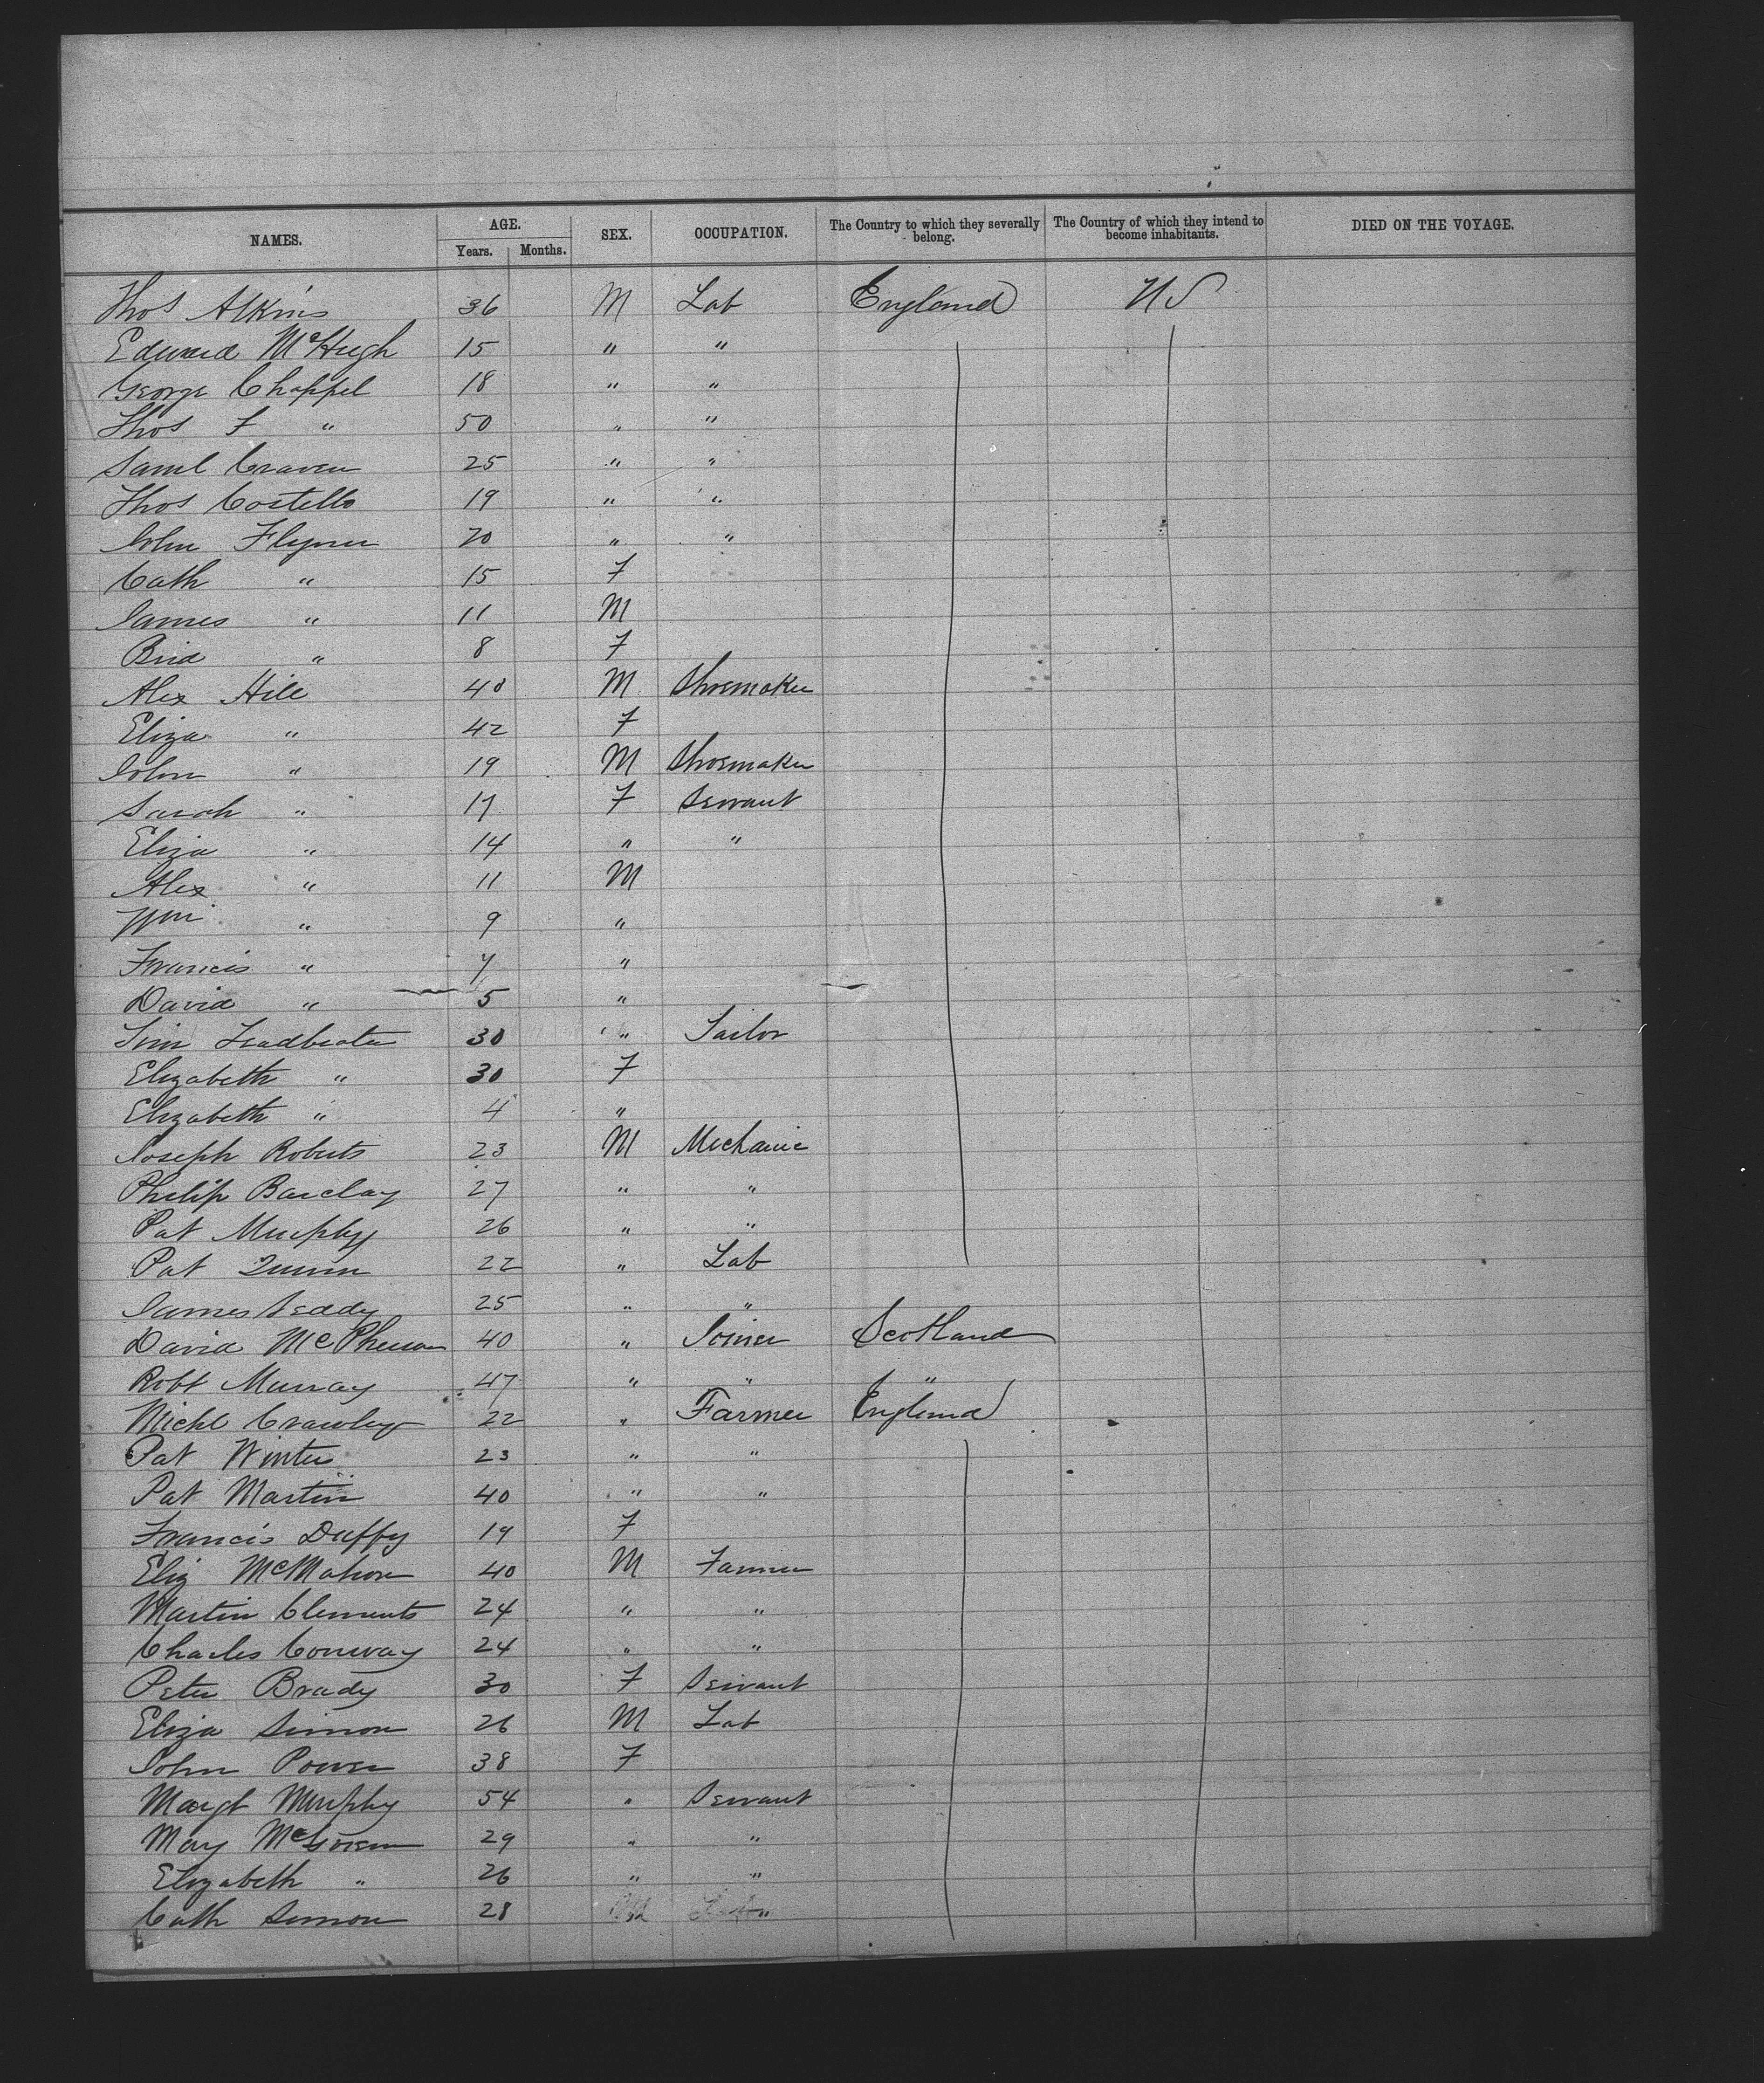 NAMES. AGE. SEX. OCCUPATION. The Country to which they severally belong. The Country of which they intend to become inhabitants. DIED ON THE VOYAGE.
Years. Months.
Thos Atkins 36 M Lab England US
Edward McHugh 15 " "
George Chappel 18 " "
Thos F " 50 " "
Saml Craven 25 " "
Thos Costello 19 " "
John Flynn 20 " "
Cath " 15 F
James " 11 M
Brid " 8 F
Alex Hill 40 M Shoemaker
Eliza " 42 F
John " 19 M Shoemaker
Sarah " 17 F Servant
Eliza " 14 " "
Alex " 11 M
Wm " 9 "
Francis " 7 "
David " 5 "
Leadbeater 30 " Tailor
Elizabeth " 30 F
Elizabeth " 4 "
Joseph Roberts 23 M Mechanic
Philip Barclay 27 " "
Pat Murphy 26 " "
Pat Quinn 22 " Lab
James Leddy 25 " "
David McPherson 40 " Joiner Scotland
Robt Murray 47 " " "
Michl Crawley 22 " Farmer England
Pat Winters 23 " "
Pat Martin 40 " "
Francis Duffy 19 F
Eliz McMahon 40 M Farmer
Martin Clements 24 " "
Charles Conway 24 " "
Peter Brady 30 F Servant
Eliza Simon 26 M Lab
John Power 38 F
Margt Murphy 54 " Servant
Mary 29 " "
Elizabeth " 26 " "
Cath Simon 28 "